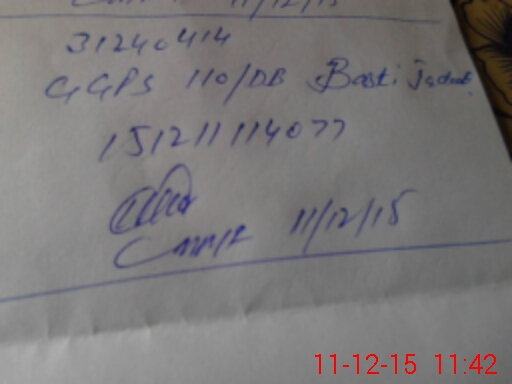 11/12/15
31240414
GGPS 110/DB Basti
15121111407
11/12/15
11-12-15 11:42